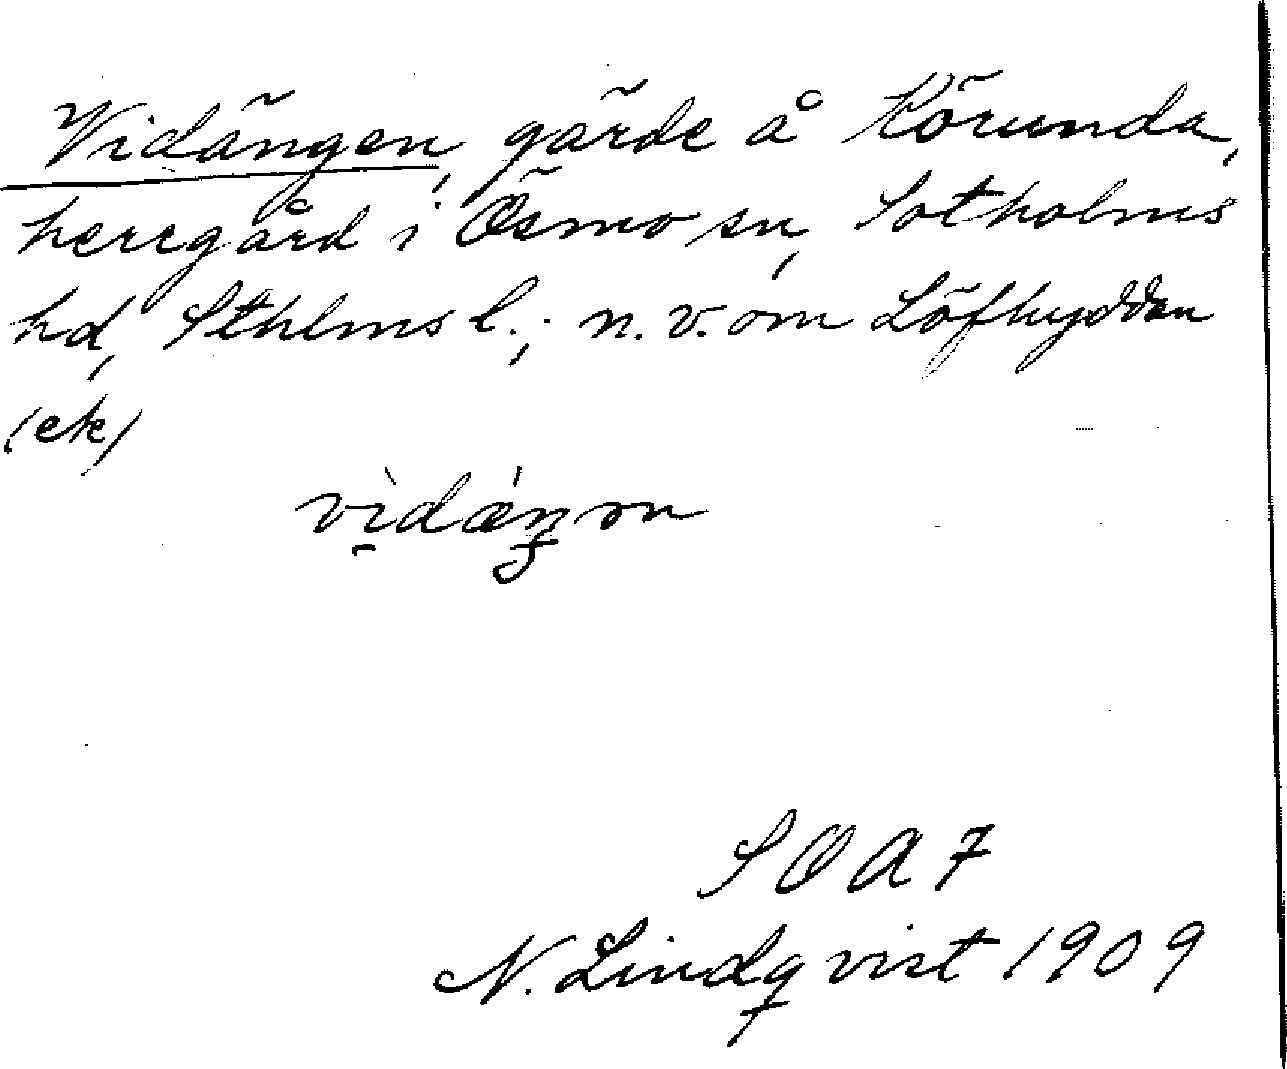 Vidängen, gärde å Körunda,
herrgård i Ösmo sn, Sotholms
hd, Sthlms l.; n.v. om Löfhyddan
(ek)
vìdǽŋən
SOA 7
N. Lindqvist 1909